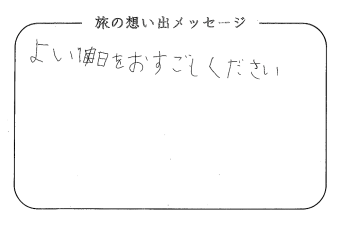 旅の想い出メッセージ
よい日をおすごしください